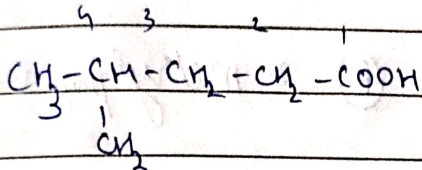 4 3 2 1
CH3-CH-CH2-CH2-COOH
|
CH2